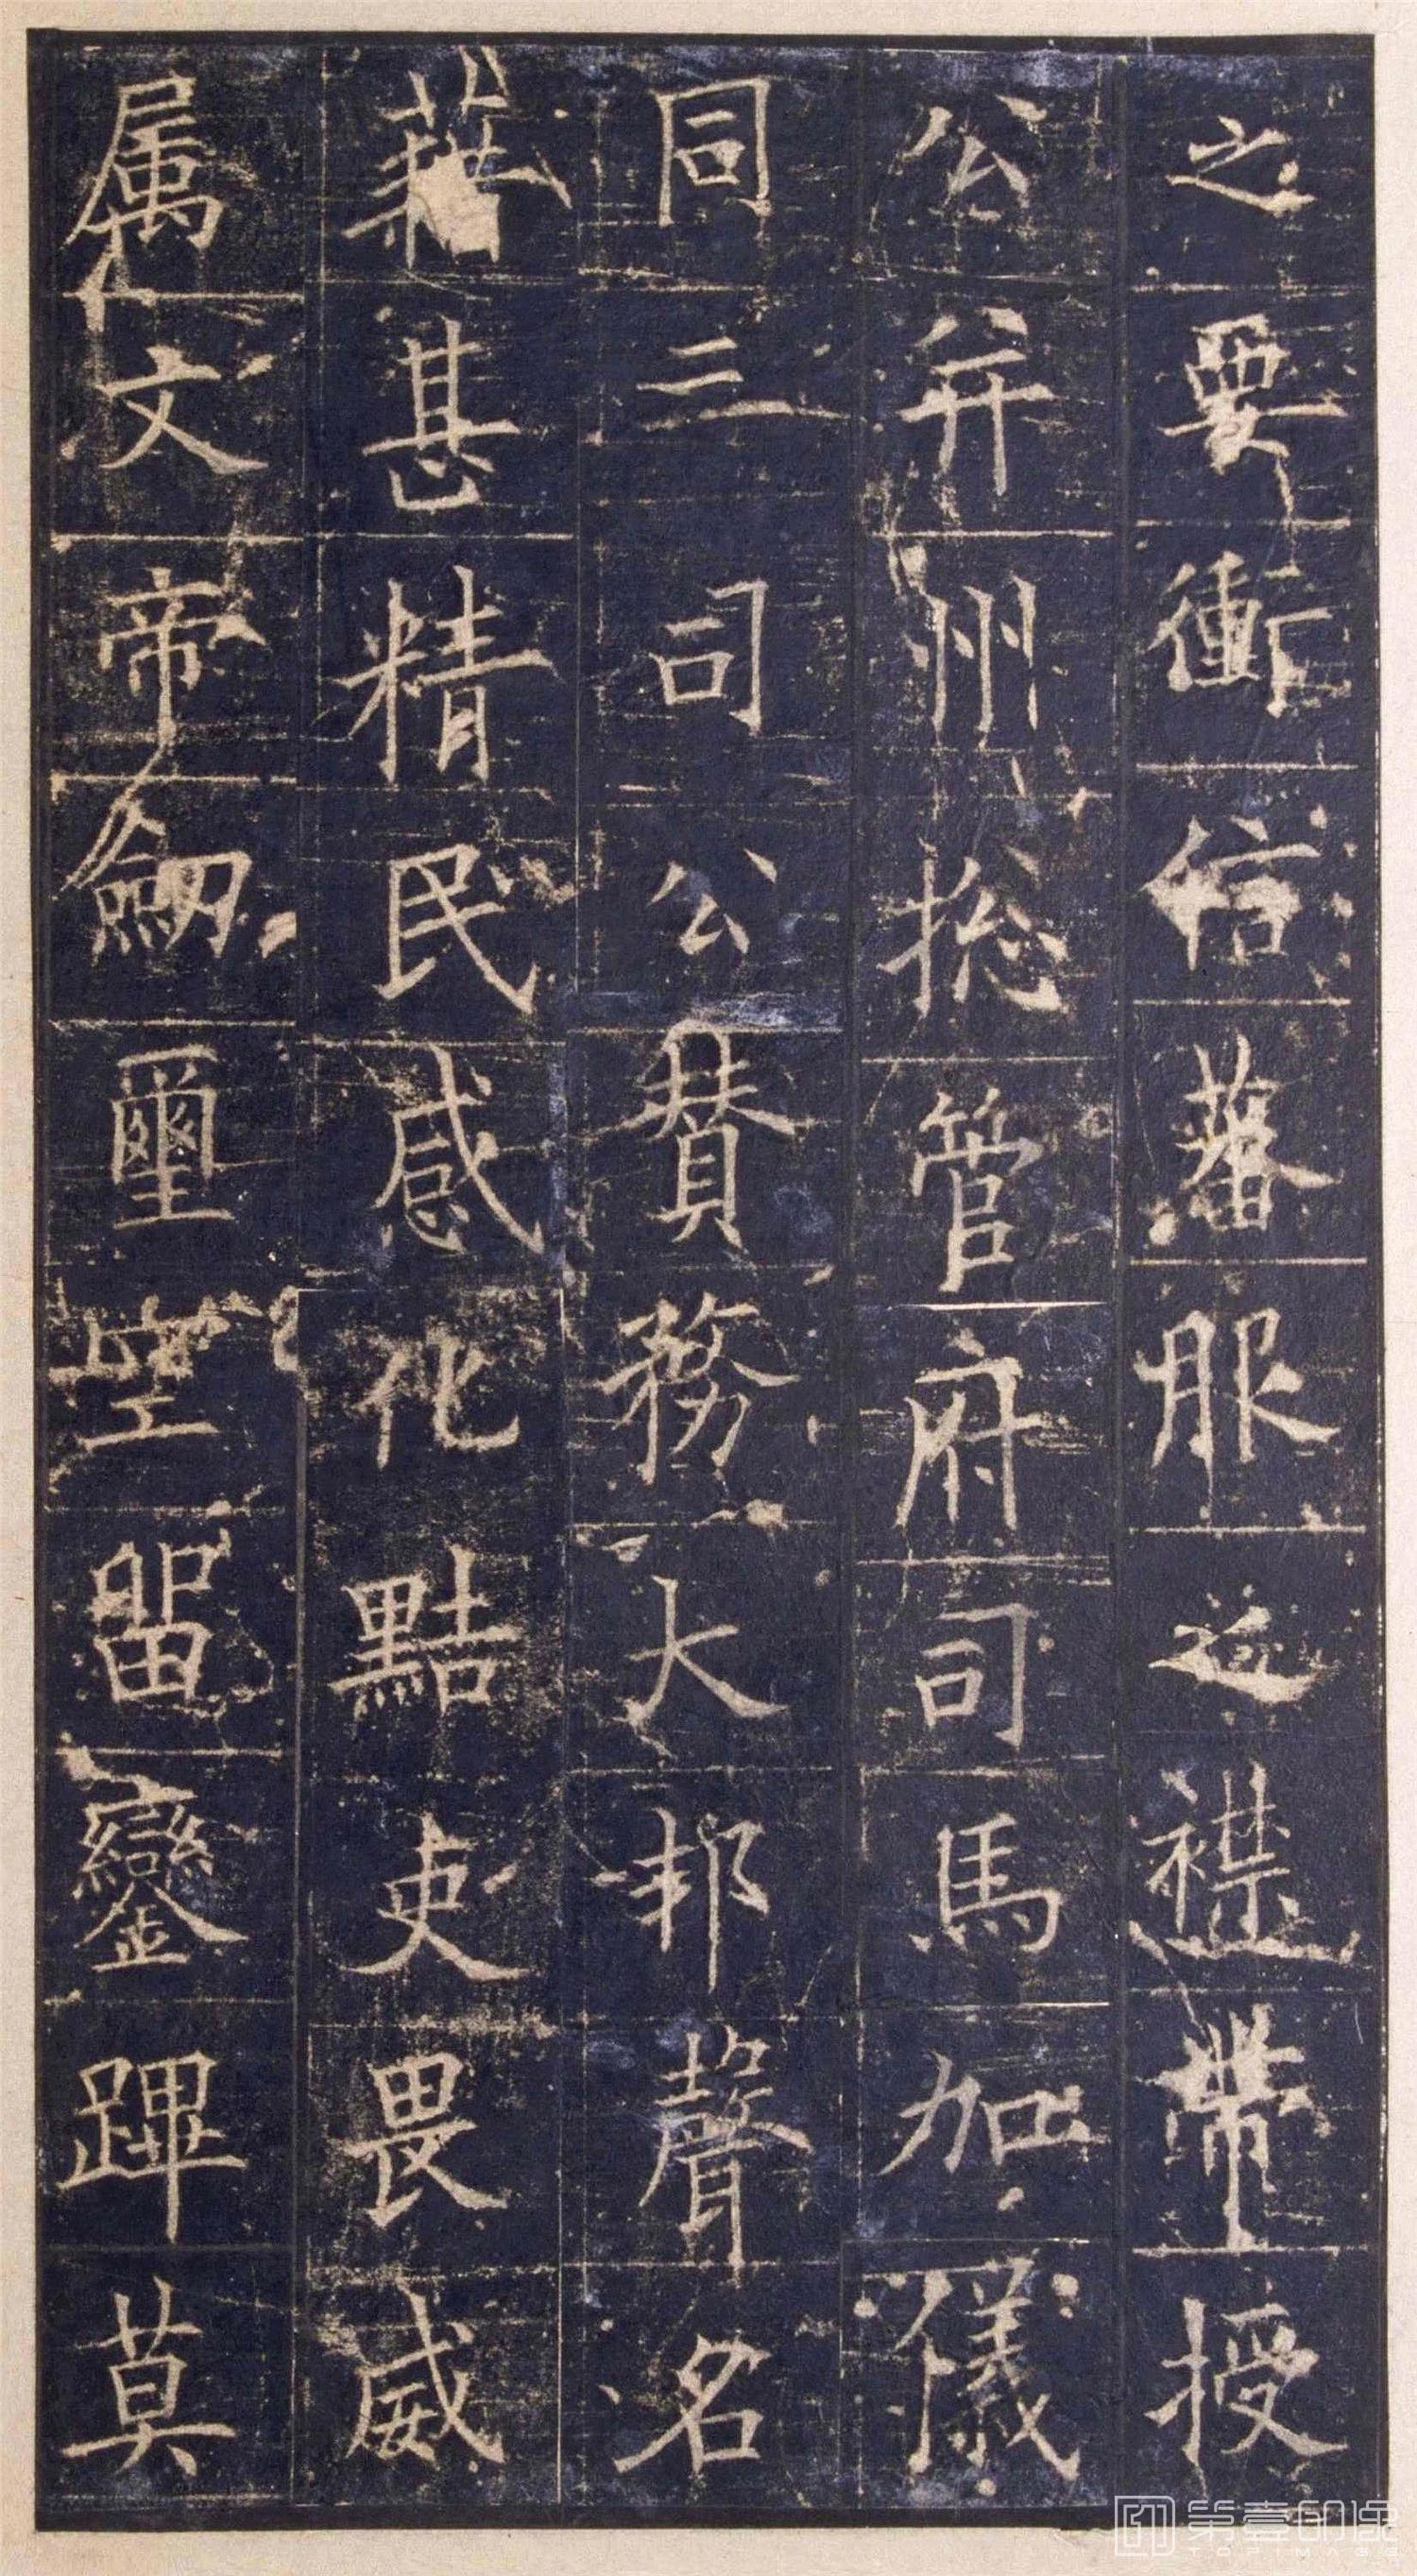 之要衝信蕃服之襟帶授
公并州捴管府司馬加儀
同三司公贊務大邦聲名
藉甚精民感化黠吏畏威
属文帝劒璽空留鑾蹕莫
第壹印像
TOPIMAGE